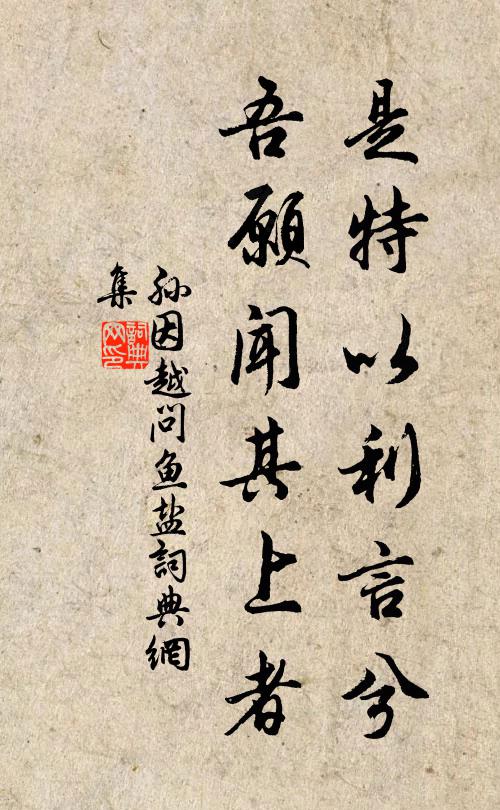 是特以利言兮
吾願聞其上者
孙因越问鱼盐詞典網
集
詞典网印